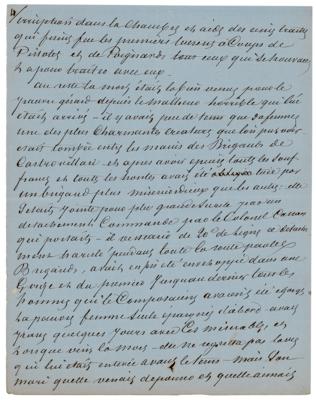 irruption dans la chambre et aidés des cinq traîtres
qui prirent par les premiers tuèrent à Coups de
Pistolets et de Poignards tous ceux qui se trouvaient
et à pour traites avec eux.
au reste la mort était la bien venue pour le
pauvre gérard depuis le malheur horrible qui lui
était arrivé - il y avait peu de tems que sa femme
une des plus Charmantes Creatures que l'on pût voir
était tombée entre les mains des Brigants de
Castrovillari et après avoir epuisé toutes les souf
frances et toutes les hontes avait été tuée par
un brigand plus miséricordieux que les autres. elle
s'etait jointe pour plus grande sureté par un
detachement Commandé par le Colonel
qui partait - à versants de 20 de lignes ce detache
ment harcelé pendant toute la route par les
Brigands, avait enfin été enveloppé dans une
Gorge et du premier jusqu'au dernier tous les
hommes qui le Composaient avaient été égorgés
La pauvre femme seule epargnée d'abord avait
vécu quelques jours avec Ces misérables, et
Lorsque vint la mort - elle ne regretta pas la vie
qui lui était enlevée avant le tems - mais son
mari quelle venait de et quelle aimait